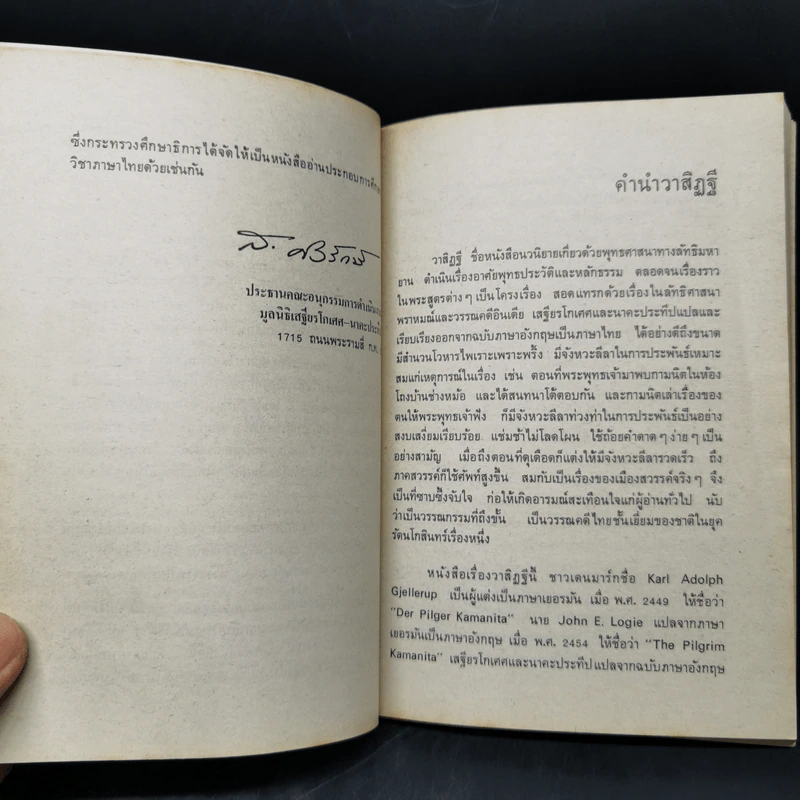 ซึ่งกระทรวงศึกษาธิการได้จัดให้เป็นหนังสืออ่านประกอบการศึกษา
วิชาภาษาไทยด้วยเช่นกัน
ส. ศิวรักษ์
ประธานคณะอนุกรรมการดำเนินงาน
มูลนิธิเสฐียรโกเศศ-นาคะประทีป
1715 ถนนพระรามสี่ ก.ท.
คำนำวาสิฏฐี
วาสิฏฐี ชื่อหนังสือนวนิยายเกี่ยวด้วยพุทธศาสนาทางลัทธิมหา
ยาน ดำเนินเรื่องอาศัยพุทธประวัติและหลักธรรม ตลอดจนเรื่องราว
ในพระสูตรต่างๆ เป็นโครงเรื่อง สอดแทรกด้วยเรื่องในลัทธิศาสนา
พราหมณ์และวรรณคดีอินเดีย เสฐียรโกเศศและนาคะประทีปแปลและ
เรียบเรียงออกจากฉบับภาษาอังกฤษเป็นภาษาไทย ได้อย่างดีถึงขนาด
มีสำนวนโวหารไพเราะเพราะพริ้ง มีจังหวะลีลาในการประพันธ์เหมาะ
สมแก่เหตุการณ์ในเรื่อง เช่น ตอนที่พระพุทธเจ้ามาพบกามนิตในห้อง
โถงบ้านช่างหม้อ และได้สนทนาโต้ตอบกัน และกามนิตเล่าเรื่องของ
ตนให้พระพุทธเจ้าฟัง ก็มีจังหวะลีลาท่วงท่าในการประพันธ์เป็นอย่าง
สงบเสงี่ยมเรียบร้อย แช่มช้าไม่โลดโผน ใช้ถ้อยคำดาดๆ ง่ายๆ เป็น
อย่างสามัญ เมื่อถึงตอนที่ดุเดือดก็แต่งให้มีจังหวะลีลารวดเร็ว ถึง
ภาคสวรรค์ก็ใช้ศัพท์สูงขึ้น สมกับเป็นเรื่องของเมืองสวรรค์จริงๆ จึง
เป็นที่ซาบซึ้งจับใจ ก่อให้เกิดอารมณ์สะเทือนใจแก่ผู้อ่านทั่วไป นับ
ว่าเป็นวรรณกรรมที่ถึงขั้น เป็นวรรณคดีไทยชั้นเยี่ยมของชาติในยุค
รัตนโกสินทร์เรื่องหนึ่ง
หนังสือเรื่องวาสิฏฐีนี้ ชาวเดนมาร์กชื่อ Karl Adolph
Gjellerup เป็นผู้แต่งเป็นภาษาเยอรมัน เมื่อ พ.ศ. 2449 ให้ชื่อว่า
"Der Pilger Kamanita" นาย John E. Logie แปลจากภาษา
เยอรมันเป็นภาษาอังกฤษ เมื่อ พ.ศ. 2454 ให้ชื่อว่า "The Pilgrim
Kamanita" เสฐียรโกเศศและนาคะประทีปแปลจากฉบับภาษาอังกฤษ